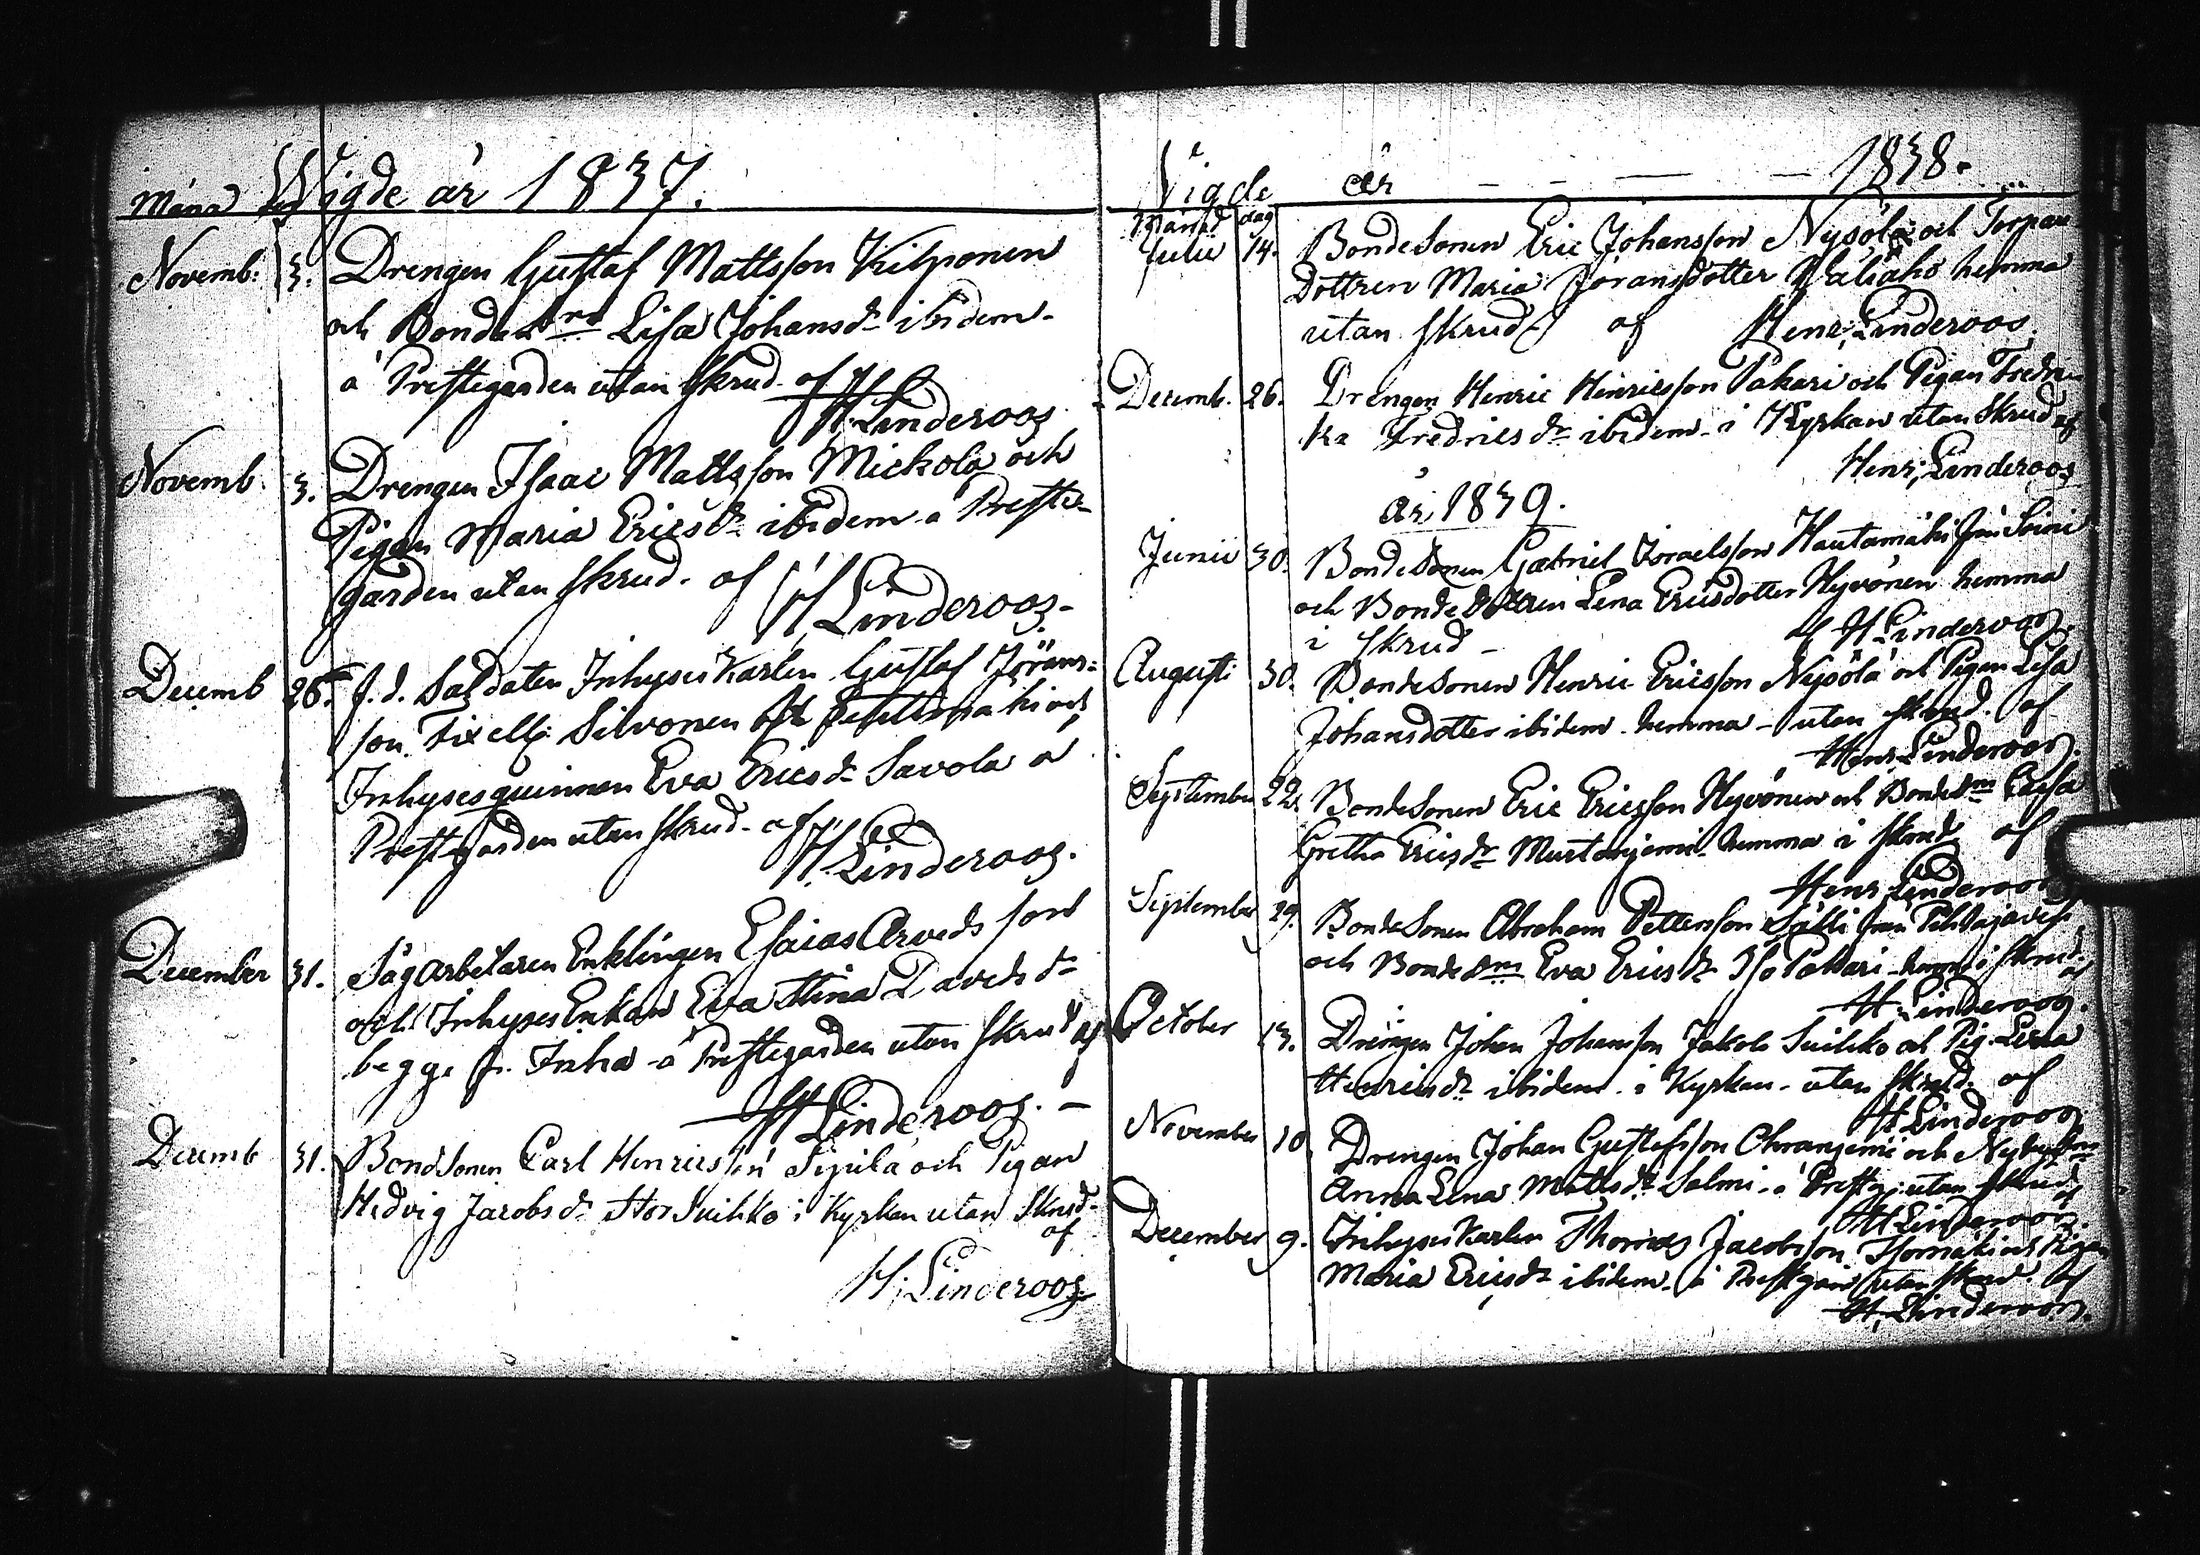 Månad dag Wigde år 1837.
Novemb: 3. Drengen Gustaf Mattsson Kilponen
och Bondedrn Lisa Johansdr ibidem
å Prestegården utan skrud af
H. Linderoos
Novemb. 3. Drengen Isaac Mattsson Mickola och
Pigan Maria Ericsdr ibidem å Preste-
gården utan skrud. af
H Linderoos
Decemb 26. f.d. Soldaten InhysesKarlen Gustaf Jörans-
son Fixell Silvonen och
Inhysesquinnan Eva Ericsdr Savola å
Prestegården utan skrud af
H. Linderoos.
December 31. Sågarbetaren Enklingen Esaias Arvedsson
och InhysesEnkan Eva Stina Davidsdr
begge fr. Inha å Prestegården utan skrud af
H Linderoos.
Decemb 31. Bondsonen Carl Henricsson Sipilä och Pigan
Hedvig Jacobsdr Stor Suihko i Kyrkan utan skrud
af
H. Linderoos
Vigde år 1838.
Månad dag
Julii 14. Bondesonen Eric Johansson Nysölä och Torpare
Dottren Maria Joransdotter Väliaho hemma
utan skrud af Henr; Linderoos.
Decemb. 26. Drengen Henric Henricsson Pakari och Pigan Fredri-
ka Fredricsdr ibidem i Kyrkan utan skrud af
Henr; Linderoos
år 1839.
Junii 30. Bondesonen Gabriel Israelsson Hautamäki från Soini
och Bondedottren Lena Ericsdotter Hyvönen hemma
i skrud af H Linderoos.
Augusti 30. Bondesonen Henric Ericsson Nysölä och Pigan Lisa
Johansdotter ibidem hemma utan skrud. af
Henr; Linderoos.
September 22. Bondesonen Eric Ericsson Hyvönen och Bondedrn Caisa
Gretha Ericsdr Mustaniemi hemma i skrud af
Henr. Linderoos
September 29. Bondesonen Abraham Pettersson Sälli från Pihlajavesi
och Bondedrn Eva Ericsdr Iso Pakari hemma i skrud. af
H Linderoos.
October 13. Drengen Johan Johansson Jakola Suihko och Pig. Lena
Henricsdr ibidem i Kyrkan utan skrud. af
H Linderoos
November 10. Drengen Johan Gustafsson Ohraniemi och
Anna Lena Mattsdr Salmi å Prestg. utan skrud af
H Linderoos.
December 9. InhysesKarlen Thomas Jacobsson och Pigan
Maria Ericsdr ibidem å Prestgård utan skrud af
H. Linderoos.